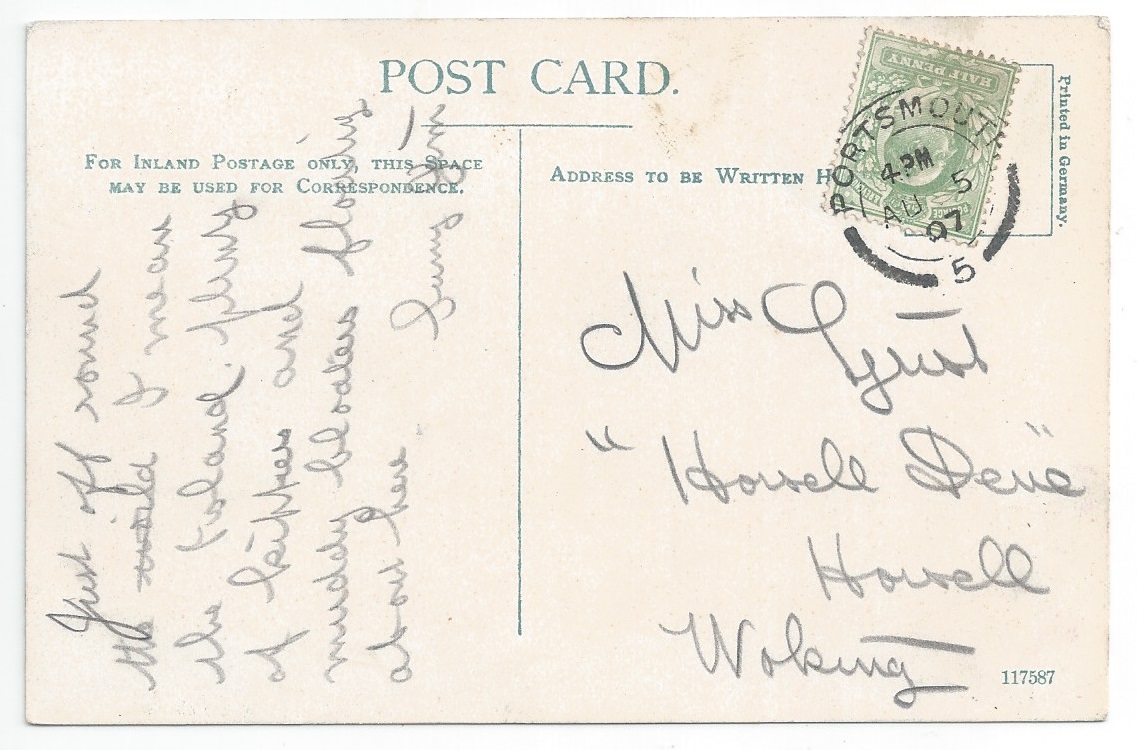 POST CARD.
FOR INLAND POSTAGE ONLY, THIS SPACE
MAY BE USED FOR CORRESPONDENCE.
ADDRESS TO BE WRITTEN
Printed in Germany.
HALF PENNY
PORTSMOUTH
4. PM
AU 5
07
5
Just off round
the world I mean
the Island. plenty
of kippers and
muddy bloaters floating
about here
Sunny Jim
Miss Grist
"Horsell Dene"
Horsell
Woking
117587